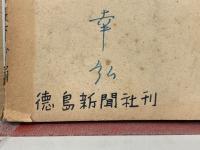 幸弘
徳島新聞社刊